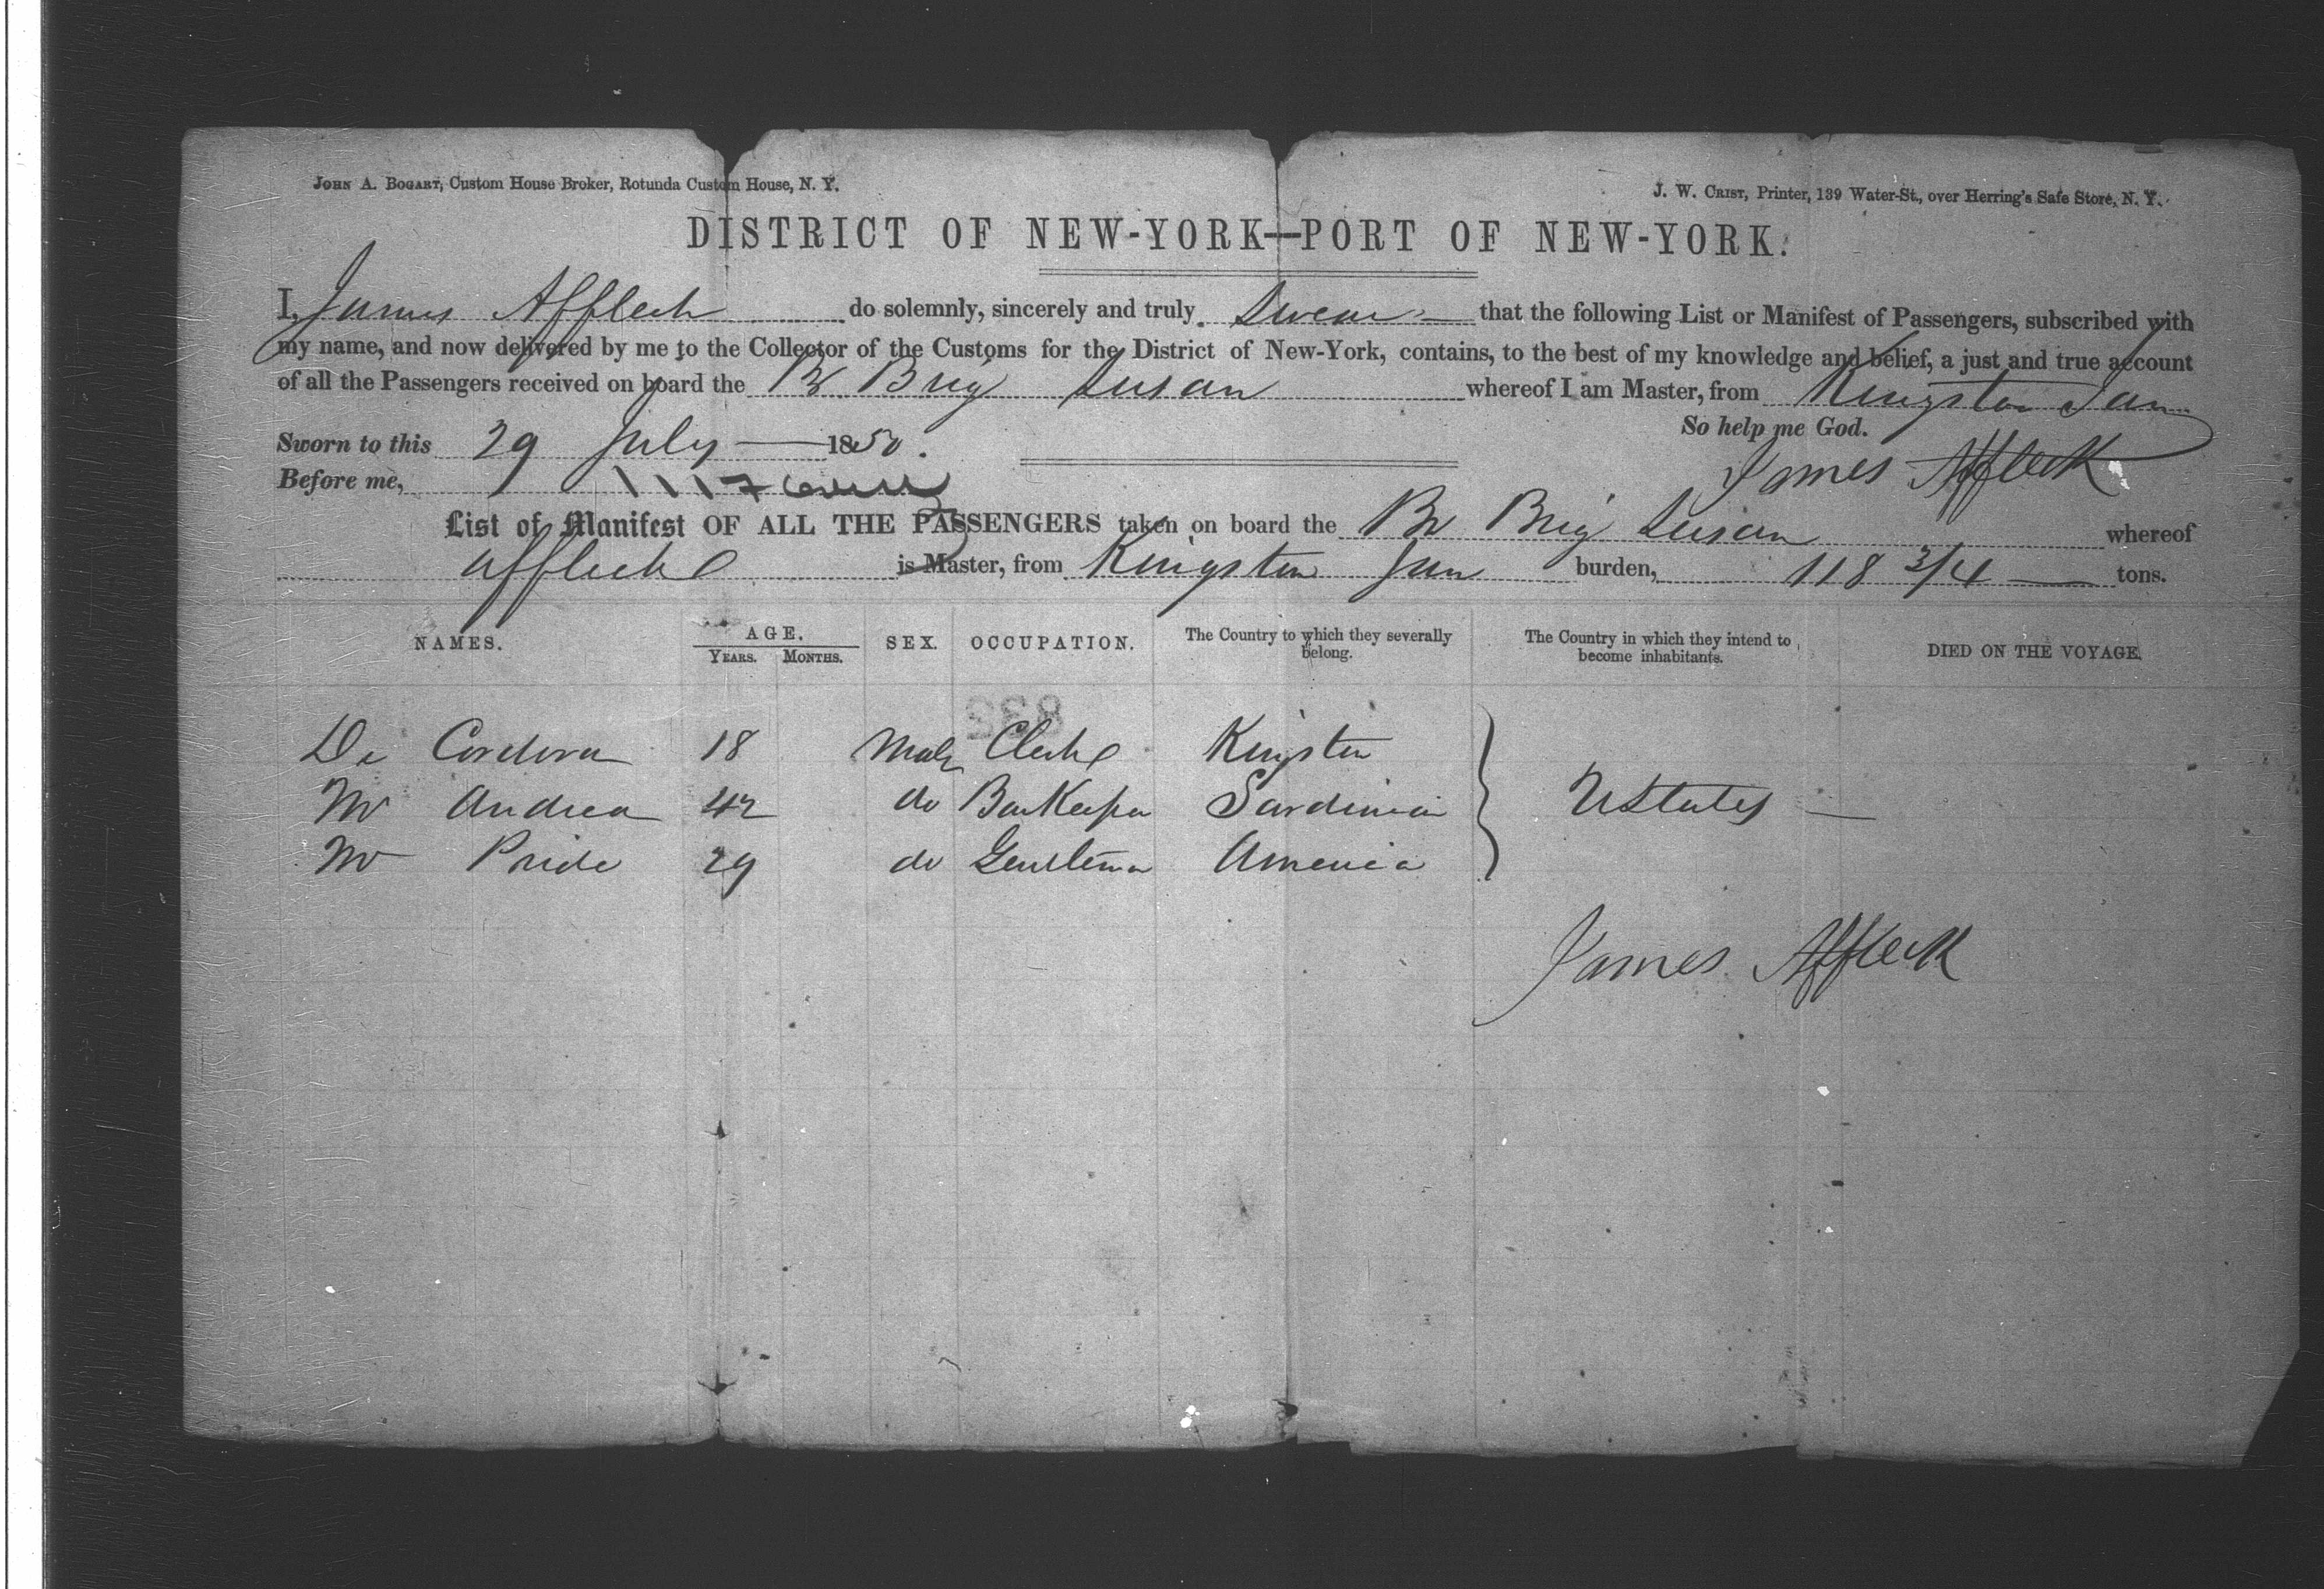 John A. Bogart, Custom House Broker, Rotunda Custom House, N. Y.
J. W. Crist, Printer, 139 Water-St., over Herring's Safe Store, N. Y.
DISTRICT OF NEW-YORK—PORT OF NEW-YORK.
I, James Affleck do solemnly, sincerely and truly Swear that the following List or Manifest of Passengers, subscribed with
my name, and now delivered by me to the Collector of the Customs for the District of New-York, contains, to the best of my knowledge and belief, a just and true account
of all the Passengers received on board the Br Brig Susan whereof I am Master, from Kingston Jam
So help me God.
Sworn to this 29 July — 1850.
James Affleck
Before me,
List of Manifest OF ALL THE PASSENGERS taken on board the Br Brig Susan whereof
Affleck is Master, from Kingston Jam burden, 118 3/4 — tons.
NAMES. AGE. SEX. OCCUPATION. The Country to which they severally belong. The Country in which they intend to become inhabitants. DIED ON THE VOYAGE.
YEARS. MONTHS.
832
De Cordova 18 Male Clerk Kingston
Mr Andrea 42 do BarKeeper Sardinia UStates —
Mr Pride 29 do Gentlema America
James Affleck